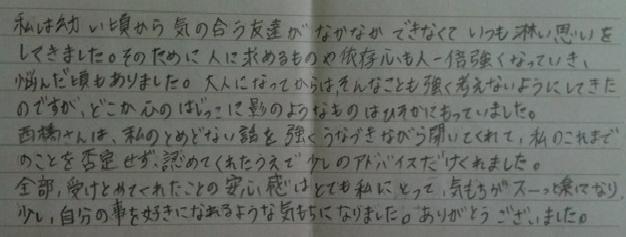 私は幼い頃から気の合う友達がなかなかできなくていつも淋しい思いを
してきました。そのために人に求めるものや依存心も人一倍強くなっていき、
悩んだ頃もありました。大人になってからは、そんなことも強く考えないようにしてきた
のですが、どこか心のはじっこに影のようなものはひそかにもっていました。
西橋さんは、私のとめどない話を強くうなづきながら聞いてくれて、私のこれまで
のことを否定せず、認めてくれたうえで少しのアドバイスだけくれました。
全部、受けとめてくれたことの安心感はとても私にとって、気もちがスーッと楽になり、
少し、自分の事を好きになれるような気もちになりました。ありがとうございました。